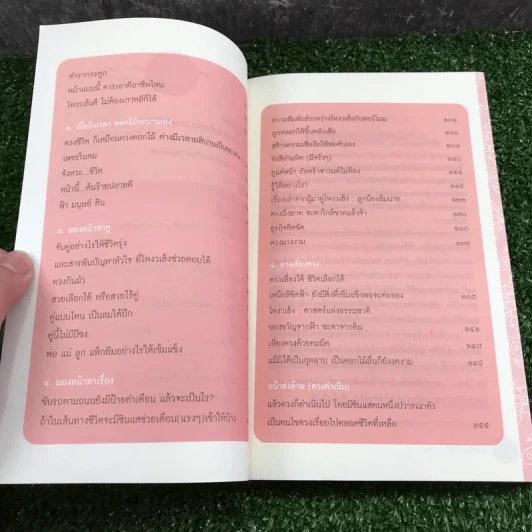 ตำรากระดูก
หน้าแบบนี้ ควรเอาดีอาชีพไหน
โหงวเฮ้งดี ไม่ต้องเกาหลีก็ได้
๓. เมื่อถึงเวลา ดอกไม้จะบานเอง
ดวงชีวิต ก็เหมือนดวงดอกไม้ ต่างมีเวลาผลิบานเป็นของตน
เพชรในตม
จังหวะ...ชีวิต
หน้านี้...ต้นร้ายปลายดี
ฟ้า มนุษย์ ดิน
๓. มองหน้าหาคู่
จับคู่อย่างไรให้ชีวิตรุ่ง
และสารพันปัญหาหัวใจ ที่โหงวเฮ้งช่วยตอบได้
ดวงกินผัว
สวยเลือกได้ หรือสวยไร้คู่
คู่แบบไหน เป็นลมใต้ปีก
คู่นี้ไม่มีปีชง
พ่อ แม่ ลูก แท็กทีมอย่างไรให้เข้มแข็ง
๔. มองหน้าหาเรื่อง
ขับรถตามถนนยังมีป้ายคำเตือน แล้วจะเป็นไร?
ถ้าในเส้นทางชีวิตจะมีซินแสช่วยเตือน(แรงๆ)เข้าให้บ้าง
ความสัมพันธ์ระหว่างโหงวเฮ้งกับฮอร์โมน
ถูกหลอกให้ขึ้นหลังเสือ
สร้างความเชื่อถือให้พ่อตัวเอง
จังสีย่ามผิด (มีจริงๆ) ๑๑๐
ดูแค่หน้า อัลตร้าซาวนด์ไม่ต้อง
รู้ได้อย่างไร?
เรื่องเล่าจากผู้มาดูโหงวเฮ้ง : ลูกน้องล้มนาย
ดวงถึงฆาต ชะตาใกล้ขาดแล้วจ้า
ธุรกิจติดขัด
ดวงนางงาม
๕. ทางเลี่ยงดวง
ดวงเลี่ยงได้ ชีวิตเลือกได้
เหนือลิขิตฟ้า ยังมีสิ่งที่เข้มแข็งพอจะต่อรอง
โหงวเฮ้ง : ศาสตร์แห่งธรรมชาติ
ของขวัญจากฟ้า ชะตาจากดิน
เลี่ยงดวงด้วยคนมีด
แม้มิได้เป็นกุหลาบ เป็นดอกไม้อื่นก็ยังงดงาม
หน้าส่งท้าย (ดวงดำเนิน)
แล้วดวงก็ดำเนินไป โดยมีซินแสคนหนึ่งปวารณาตัว
เป็นคนไขดวงเรื่อยไปตลอดชีวิตที่เหลือ